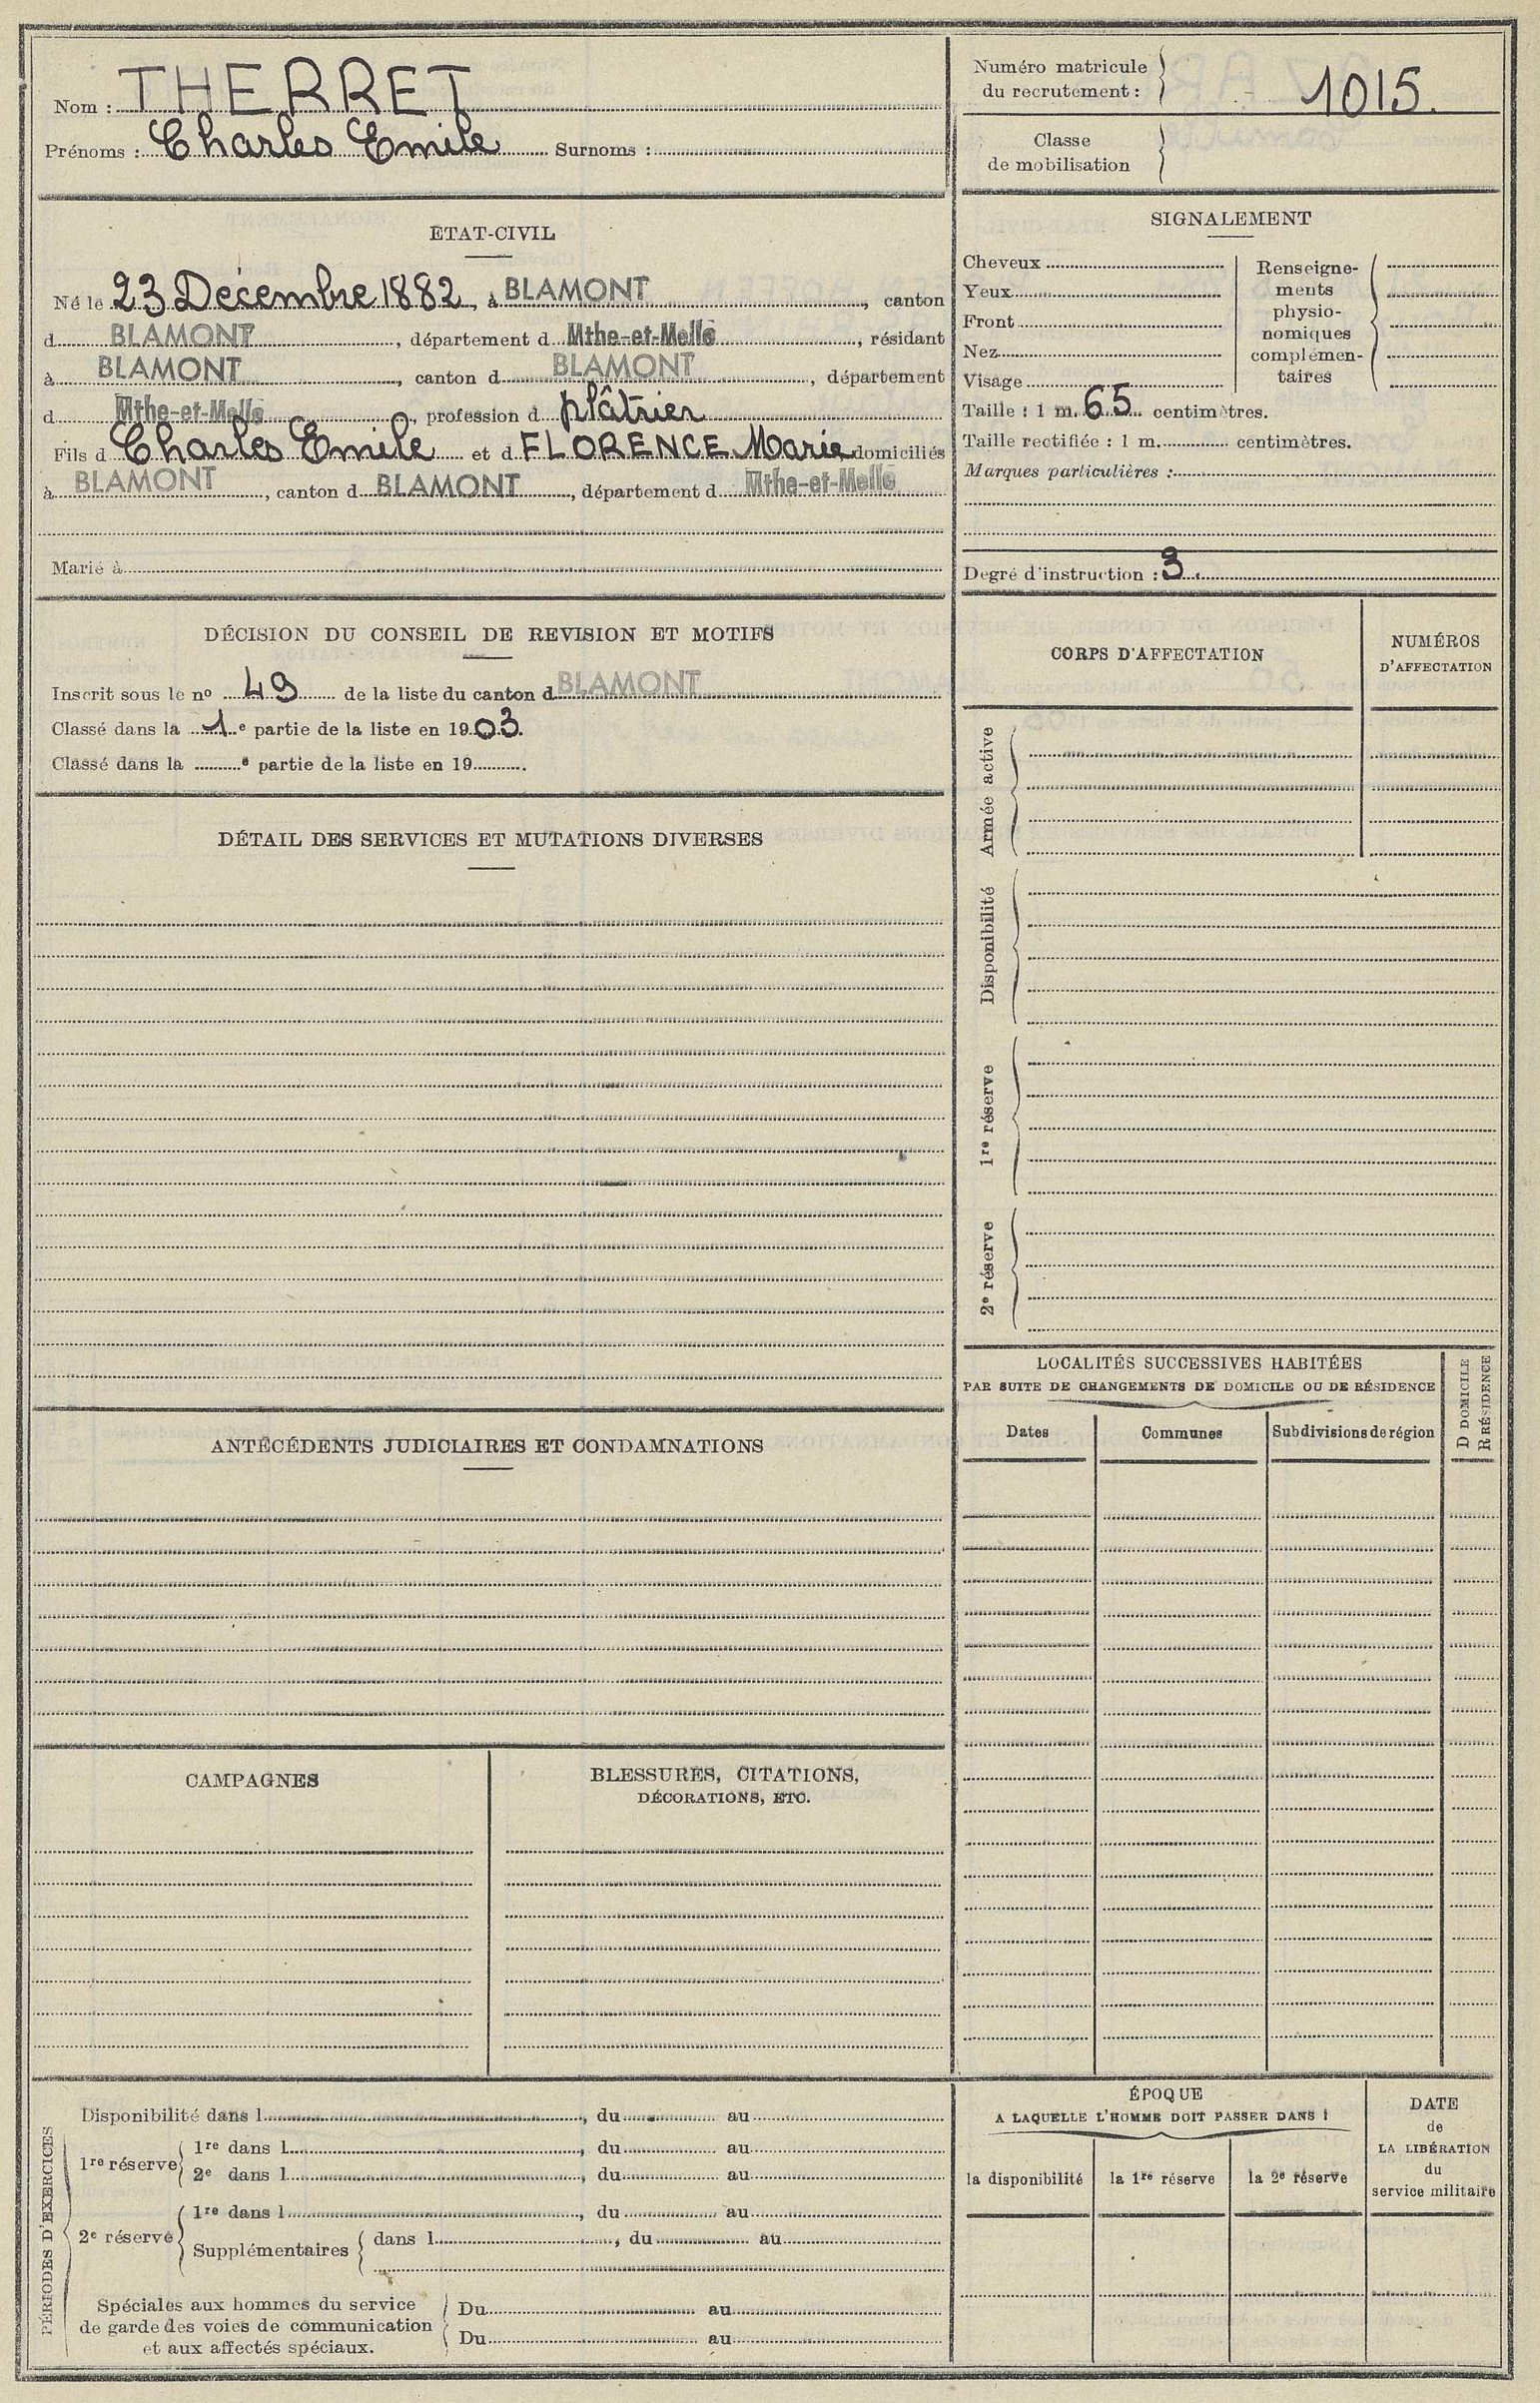 Nom : THERRET
Prénoms : Charles Emile Surnoms :
Numéro matricule
du recrutement : 1015.
Classe
de mobilisation
ETAT-CIVIL
Né le 23 Décembre 1882, à BLAMONT, canton
d BLAMONT, département d Mthe-et-Melle, résidant
à BLAMONT, canton d BLAMONT, département
d Mthe-et-Melle, profession d plâtrier
Fils d Charles Emile et d FLORENCE Marie domiciliés
à BLAMONT, canton d BLAMONT, département d Mthe-et-Melle
Marié à
SIGNALEMENT
Cheveux
Yeux
Front
Nez
Visage
Renseigne-
ments
physio-
nomiques
complémen-
taires
Taille : 1 m. 65 centimètres.
Taille rectifiée : 1 m. centimètres.
Marques particulières :
Degré d'instruction : 3.
DÉCISION DU CONSEIL DE REVISION ET MOTIFS
Inscrit sous le no 49 de la liste du canton d BLAMONT
Classé dans la 1e partie de la liste en 1903.
Classé dans la e partie de la liste en 19
CORPS D'AFFECTATION
NUMÉROS
D'AFFECTATION
Armée active
Disponibilité
1re réserve
2e réserve
DÉTAIL DES SERVICES ET MUTATIONS DIVERSES
LOCALITÉS SUCCESSIVES HABITÉES
PAR SUITE DE CHANGEMENTS DE DOMICILE OU DE RÉSIDENCE
D DOMICILE
R RÉSIDENCE
Dates
Communes
Subdivisions de région
ANTÉCÉDENTS JUDICIAIRES ET CONDAMNATIONS
CAMPAGNES
BLESSURES, CITATIONS,
DÉCORATIONS, ETC.
PÉRIODES D'EXERCICES
Disponibilité dans l, du au
1re réserve
1re dans l, du au
2e dans l, du au
2e réserve
1re dans l, du au
Supplémentaires dans l, du au
Spéciales aux hommes du service
de garde des voies de communication
et aux affectés spéciaux.
Du au
Du au
ÉPOQUE
A LAQUELLE L'HOMME DOIT PASSER DANS :
la disponibilité
la 1re réserve
la 2e réserve
DATE
de
LA LIBÉRATION
du
service militaire